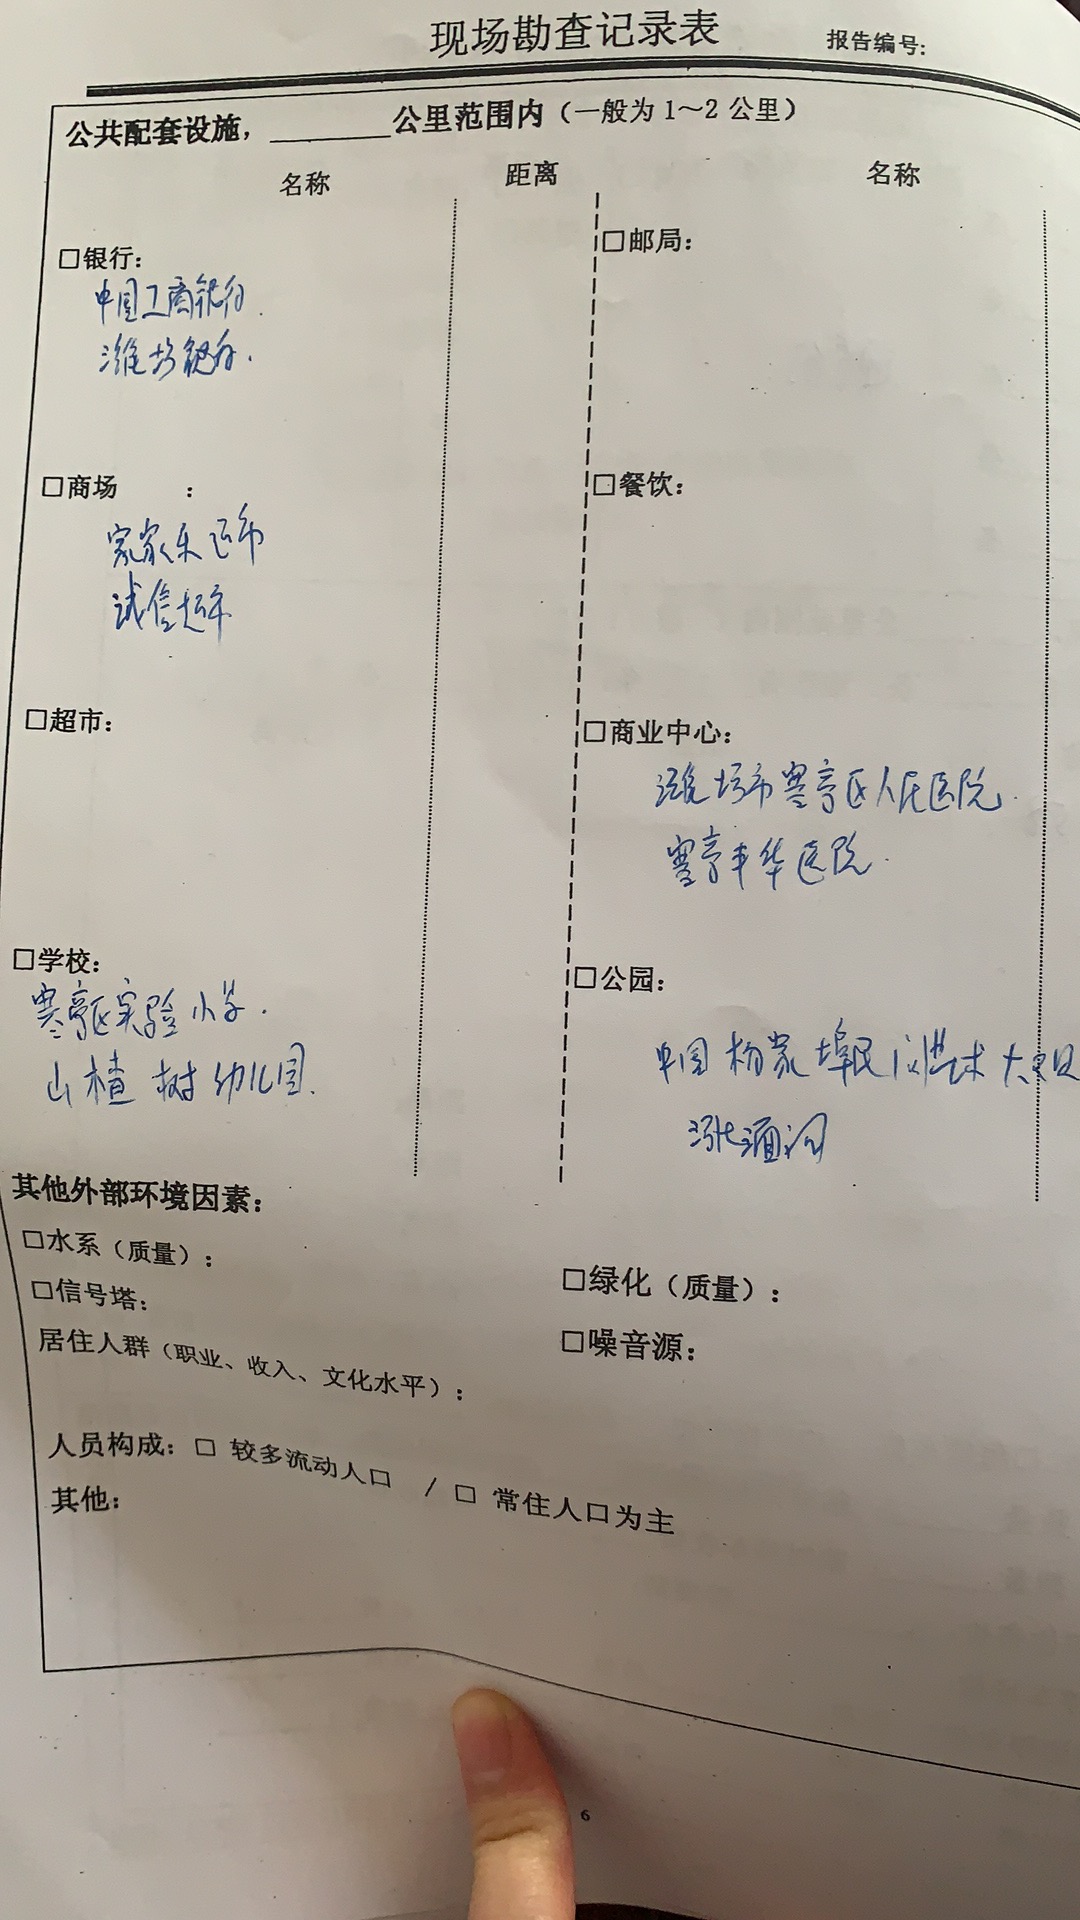 现场勘查记录表
报告编号:
公共配套设施，________公里范围内（一般为1～2公里）
名称 距离 名称
□银行：
中国工商银行.
潍坊银行.
□邮局：
□商场 ：
家家乐超市
诚信超市
□餐饮：
□超市：
□商业中心：
潍坊市寒亭区人民医院.
寒亭丰华医院.
□学校：
寒亭区实验小学.
山楂树幼儿园.
□公园：
中国杨家埠民间艺术大观园
其他外部环境因素：
□水系（质量）：
□绿化（质量）：
□信号塔：
□噪音源：
居住人群（职业、收入、文化水平）：
人员构成：□ 较多流动人口 / □ 常住人口为主
其他：
6